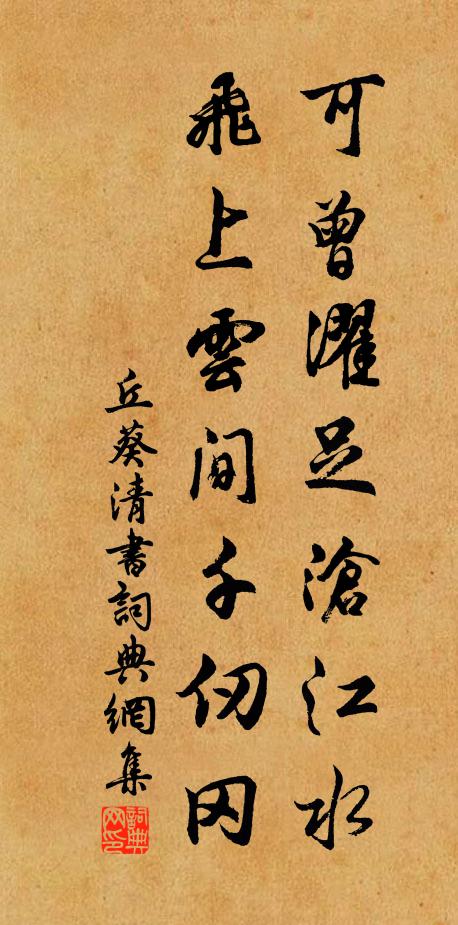 可曾濯足滄江水
飛上雲間千仞冈
丘葵清書詞典網集
詞典网印